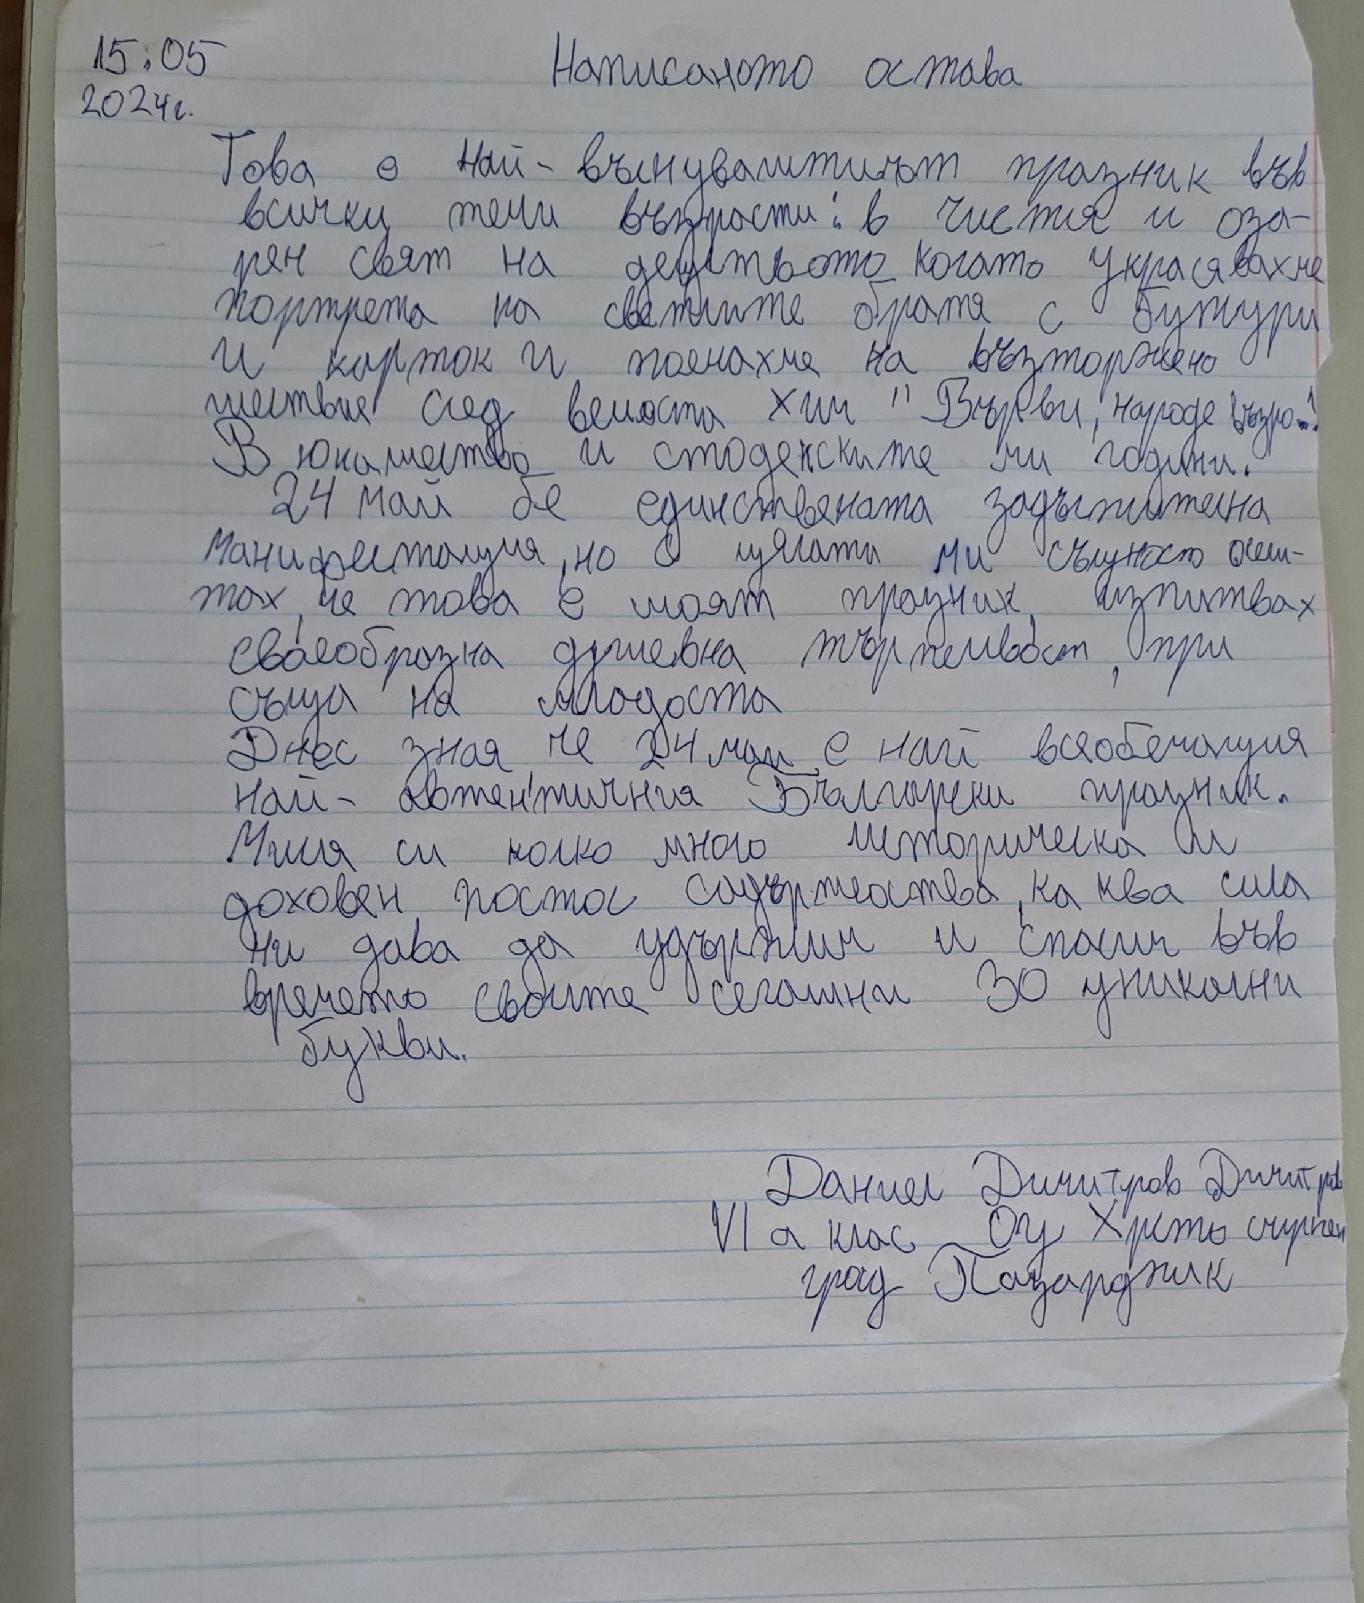 15.05
2024г.
Написаното остава
Това е най-вълнувалтичът празник във
всички теми възрасти: в чистия и оза-
рен свят на децтвото когато украсявахме
портрета на светлите братя с бужури
и карток и поемахме на възторжено
шествие след велоста хим "Върви, народе възро..!
В юнашество и стоденските ми години.
24 май бе единствената задължителна
манифестация, но с цялата ми същност осеш-
тах, че това е моят празник, изпитвах
своеобразна душевна тържеливост, при
съща на младоста
Днес зная че 24 май е най всеобемация
най-автентичния Български празник.
Мисля си колко много историческа и
доховен постос съдържеоства, ка ква сила
ни дава да удържим и спасим във
времето своите сегашни 30 уникални
букви.
Даниел Димитров Димитров
VI а клас Оу Христо смирнен
град Пазарджик